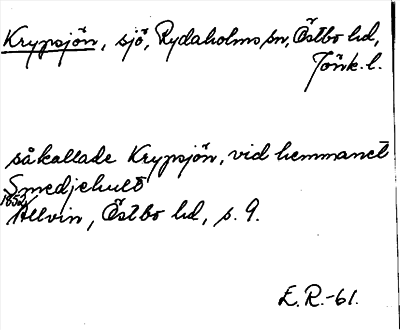 Krypsjön, sjö, Rydaholms sn, Östbo hd,
Jönk. l.
så kallade Krypsjön, vid hemmanet
Smedjehult
1852
Allvin, Östbo hd, s. 9.
E. R.-61.